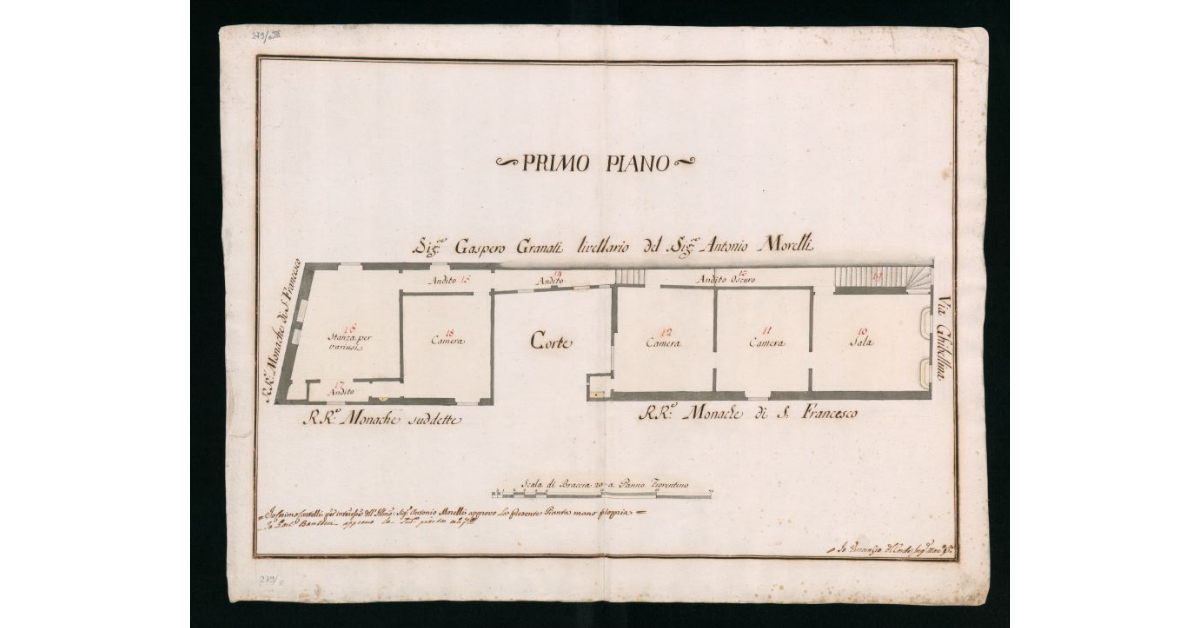 PRIMO PIANO
Sig.re Gaspero Granati livellario del Sig.re Antonio Morelli
RR.e Monache di S. Francesco
Andito 15
14
Andito
13
Andito Oscuro
16
Stanza per
18
Camera
Corte
12
Camera
11
Camera
10
Sala
Via Ghibellina
17
Andito
RR.e Monache suddette
RR.e Monache di S. Francesco
Scala di Braccia 20 a Panno Fiorentino
Antonio Morelli approvo la presente Pianta mano propria